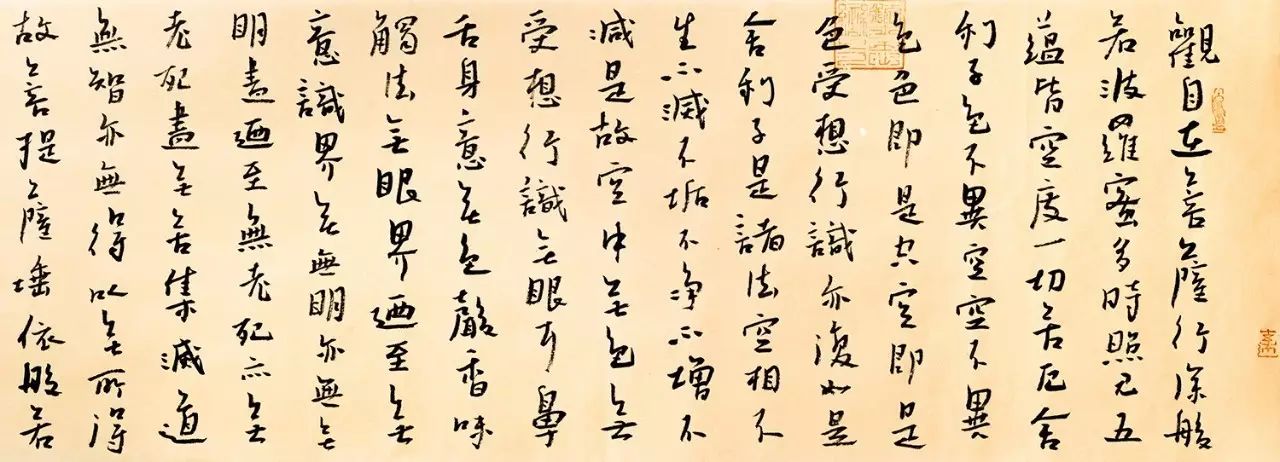 觀自在菩薩行深般
若波羅蜜多時照見五
蘊皆空度一切苦厄舍
利子色不異空空不異
色色即是空空即是
色受想行識亦復如是
舍利子是諸法空相不
生不滅不垢不净不增不
減是故空中無色無
受想行識無眼耳鼻
舌身意無色聲香味
觸法無眼界廼至無
意識界無無明亦無無
明盡廼至無老死亦無
老死盡無苦集滅道
無智亦無得以無所得
故菩提薩埵依般若